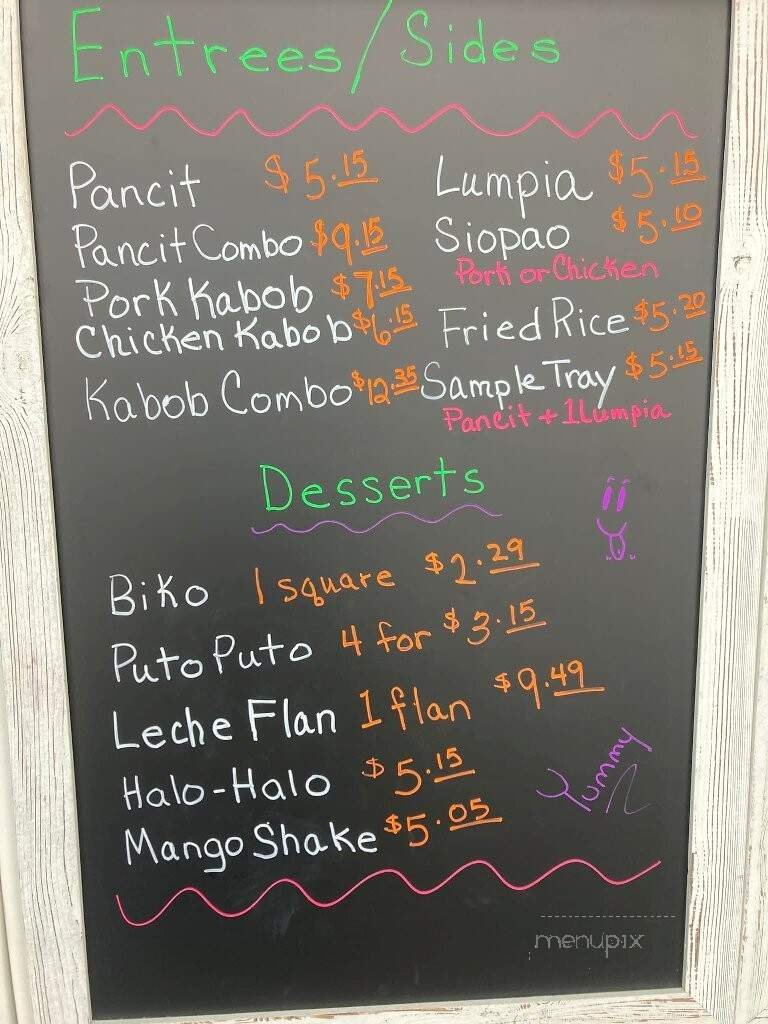 Entrees/Sides
Pancit $5.15
Pancit Combo $9.15
Pork Kabob $7.15
Chicken Kabob $6.15
Kabob Combo $12.35
Lumpia $5.15
Siopao $5.10
Pork or Chicken
Fried Rice $5.20
Sample Tray $5.15
Pancit + 1 Lumpia
Desserts
Biko 1 square $2.29
Puto Puto 4 for $3.15
Leche Flan 1 flan $9.49
Halo-Halo $5.15
Mango Shake $5.05
Yummy
menupix